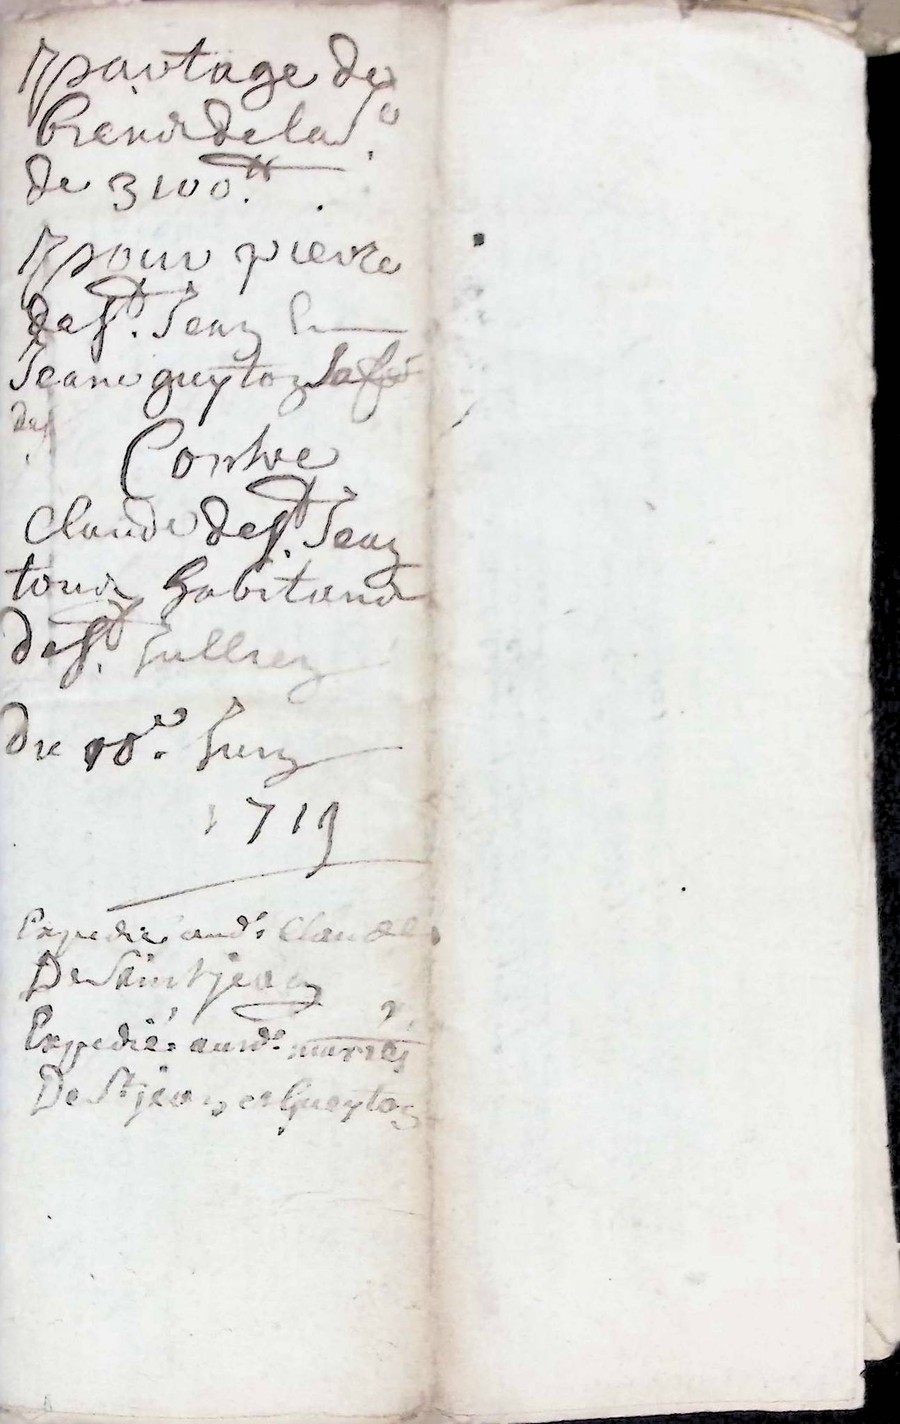 partage de
biens de la s.e
de 3100 tt.
pour pierre
de st. Jean
Jeane guyton sa fe
Contre
Claude de st. Jean
habitans
de st. Jullien
Du 10e. Juin
1719
Expedié aud. Claude
De Saint jean
Expedié ausd. mariés
De St jean et Gueyton